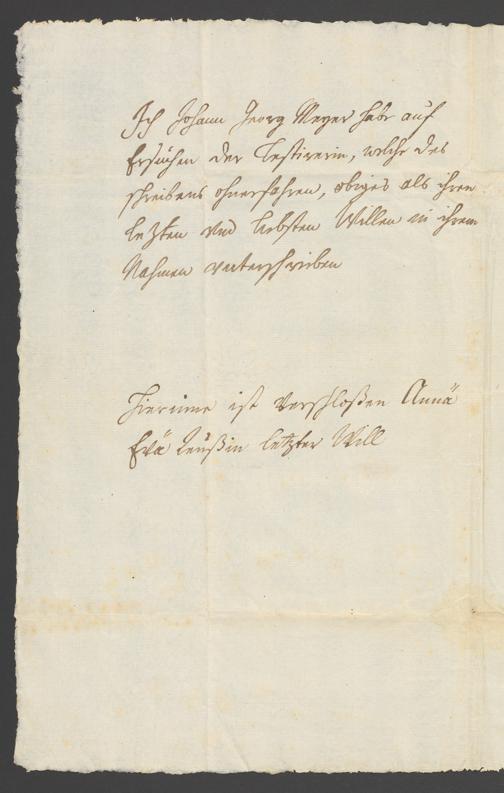 Ich Johann Georg Meyer habe auf
Ersuchen der Testirerin, welche des
schreibens ohnerfahren, obiges als ihren
letzten und liebsten Willen in ihrem
Nahmen unterschrieben
Hierinne ist verschloßen Annä
Evä Leußin letzter Will